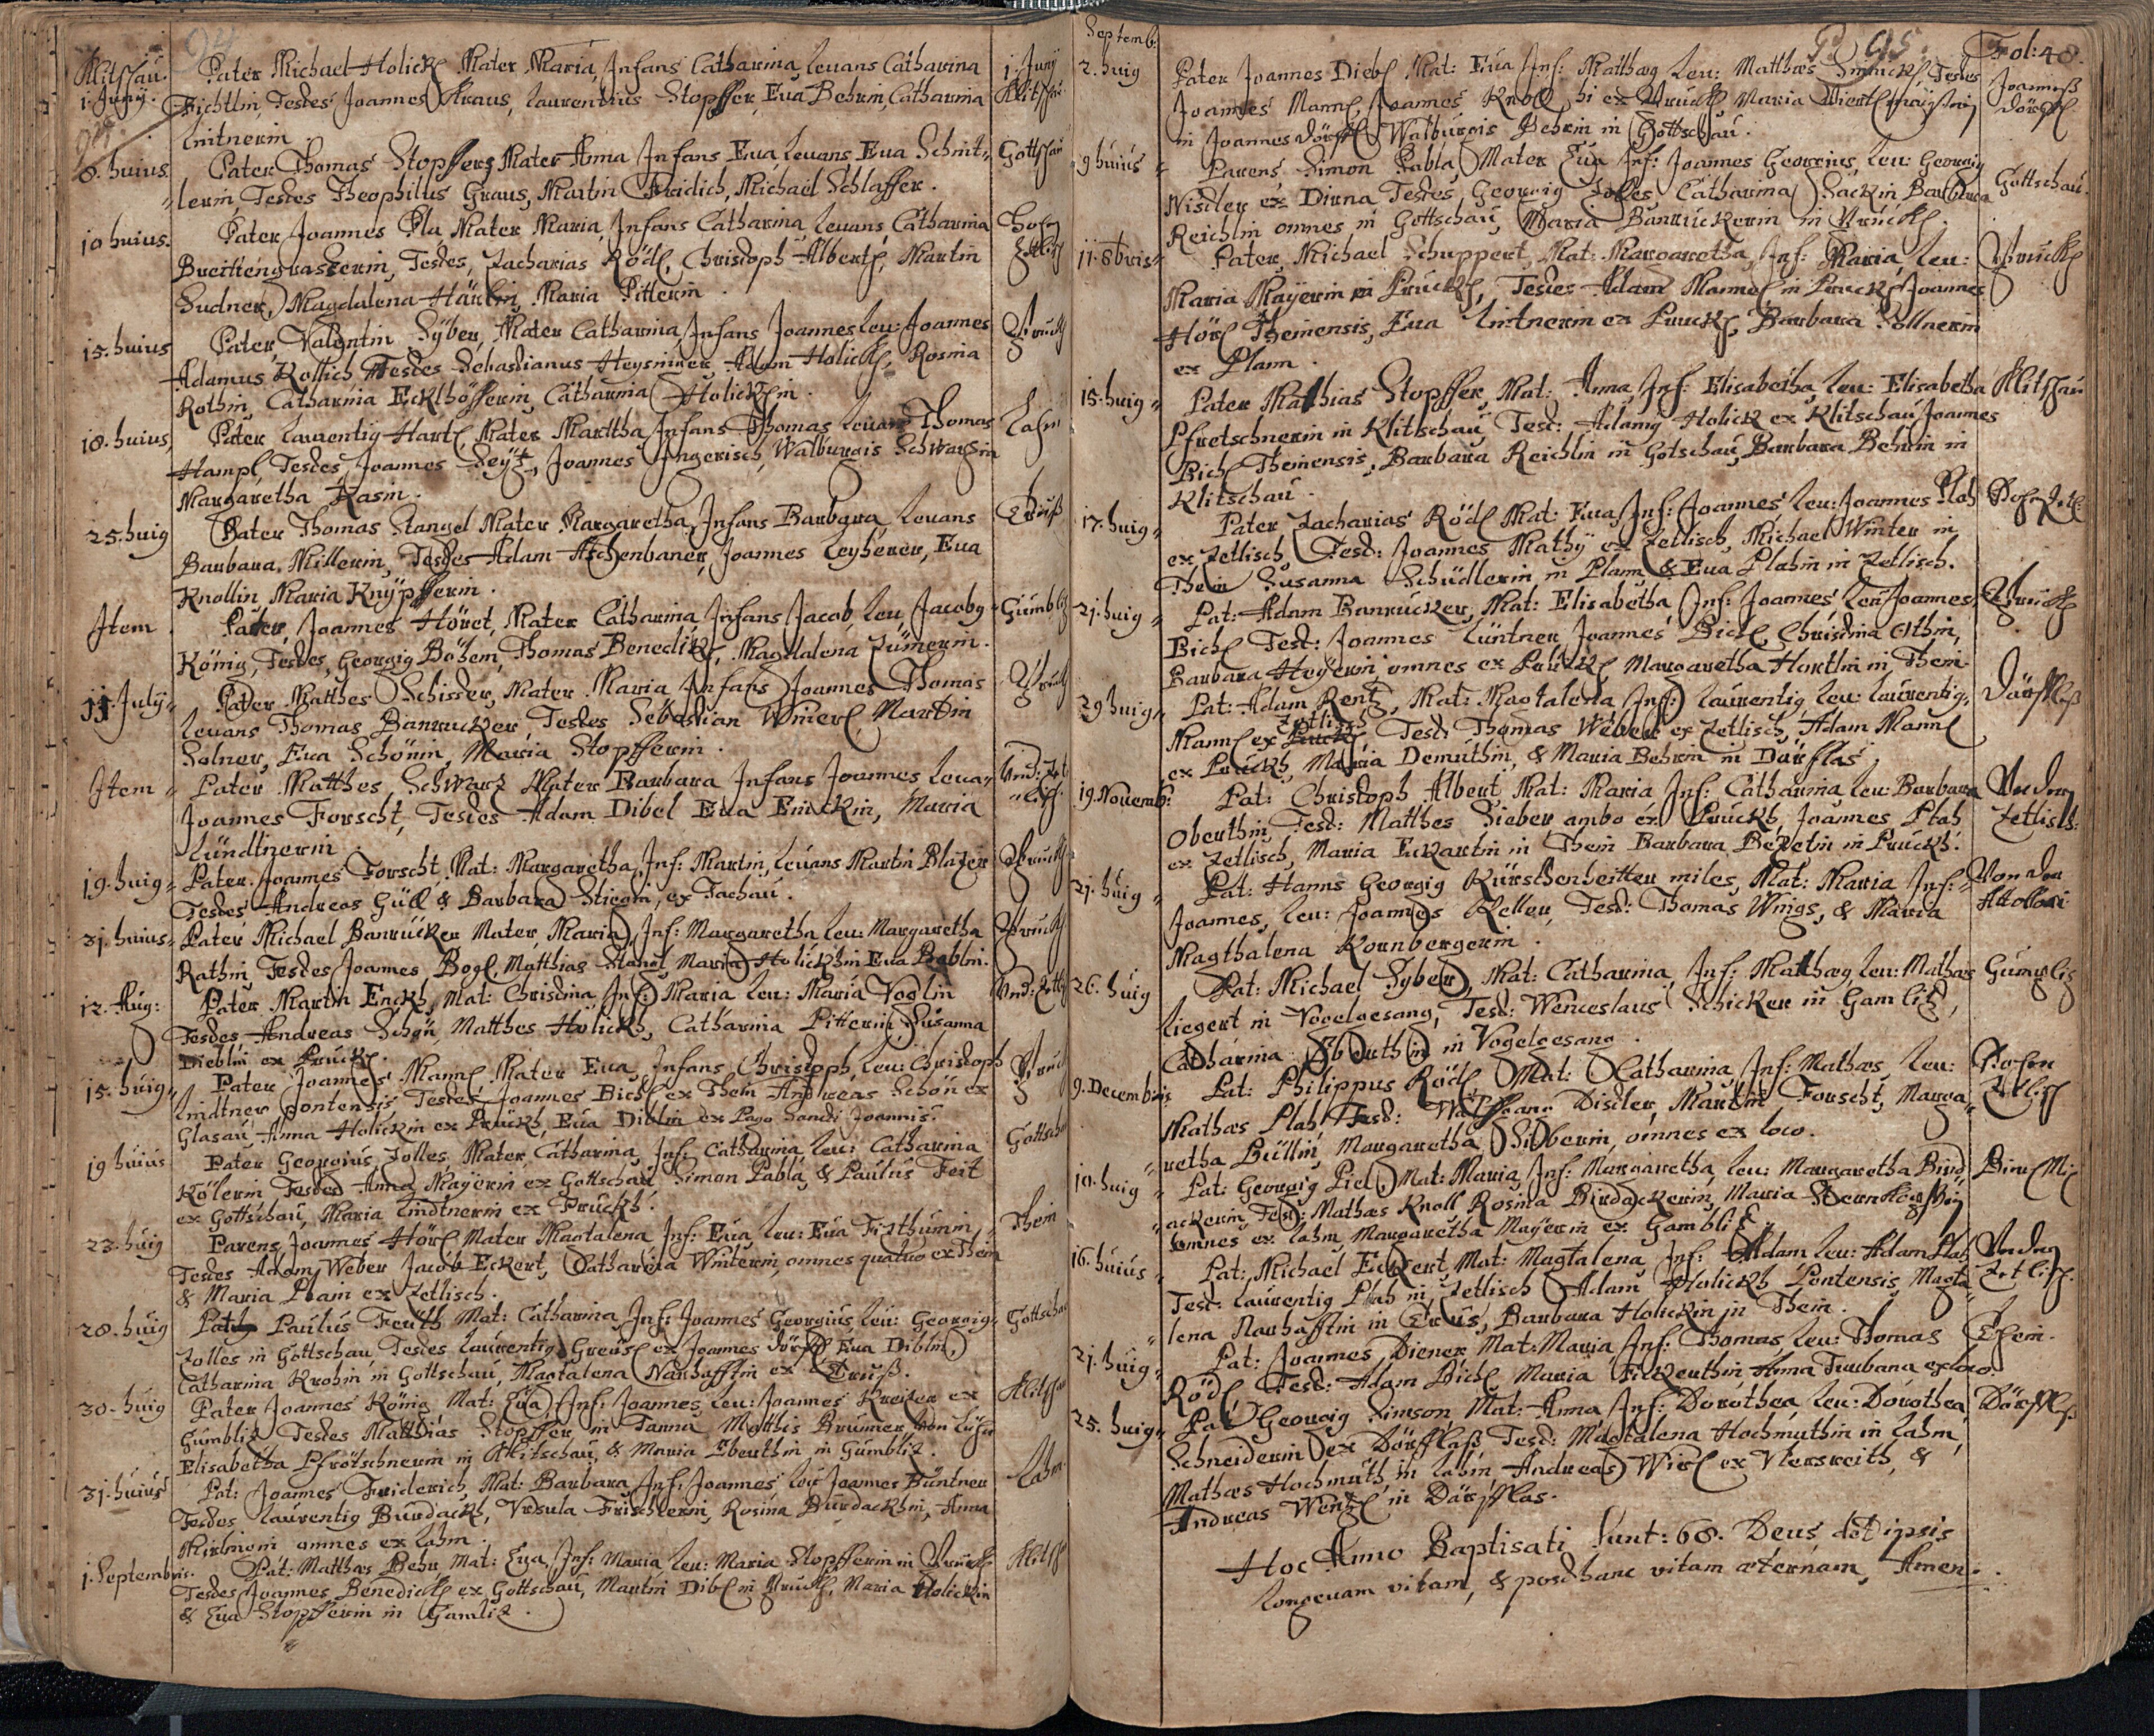 94
Klitschau. Pater Michael Holickl Mater Maria, Infans Catharina, Leuans Catharina 1. Juny
1. Juny. Fichtlin, Testes Joannes Kraus, Laurentius Stopffer, Eua Behrin, Catharina Klitschau
Lintnerin.
8. huius. Pater Thomas Stopffer, Mater Anna Infans Eua, Leuans Eua Schnit- Gottschau
lerin, Testes Theophilus Graus, Martin Fridich, Michael Schlaffer.
10 huius. Pater Joannes Pla Mater Maria, Infans Catharina, Leuans Catharina
Breittengrasserin, Testes, Zacharias Rödl, Christoph Albertl, Martin
Sudner, Magdalena Härlin, Maria Pitterin.
15. huius Pater, Valentin Syber, Mater Catharina, Infans Joannes Leu: Joannes Bruckh
Adamus Kollich Testes Sebastianus Heysinger, Adam Holickl, Rosina
Rothin, Catharina Ecklhöfferin, Catharina Holicklin.
18. huius, Pater Laurentig Hartl, Mater Martha, Infans Thomas Leuans Thomas Lahm
Hampl, Testes, Joannes Seÿt, Joannes Ingerisch, Walburgis Schwarzin
Margaretha Kasin.
25. huig Pater Thomas Stangel Mater Margaretha, Infans Barbara, Leuans
Barbara, Millerin, Testes Adam Aschenbaner, Joannes Leyherer, Eua
Knollin, Maria Knÿpfferin.
Item. Pater, Joannes Höret, Mater Catharina, Infans Jacob, Leu, Jacobg Gümbliz
König, Testes, Georgig Böhem, Thomas Benedikl, Magdalena Zümerin.
11. July Pater Matthes Schister, Mater Maria Infans Joannes Thomas Bruckh
Leuans Thomas Banrucker, Testes Sebastian Winerl, Martin
Solner, Eua Schönin, Maria Stopfferin.
Item Pater Matthes Schwarz Mater Barbara Infans Joannes Leua-
Joannes Forscht, Testes Adam Dibel Eua Emickin, Maria
Lündtnerin.
19. huig Pater Joannes Forscht Mat: Margaretha, Inf: Martin, Leuans Martin Blazer Bruckh
Testes Andreas Güll & Barbara Stiegin, ex Tachau.
31. huius Pater Michael Banrücker Mater, Maria, Inf: Margaretha Leu: Margaretha Bruckh
Rathin, Testes Joannes Bogl, Matthias Stanel, Maria Holickhin Eua Bablin.
12. Aug: Pater Martin Enckh, Mat: Christina, Inf: Maria Leu: Maria Voglin
Testes, Andreas Schön, Matthes Holickh, Catharina Pitterin, Susanna
Dieblin ex Pruckh.
15. huig Pater Joannes Mannl Mater Eua, Infans Christoph, Leu: Christoph Bruckh
Lindtner pontensis, Testes Joannes Bichl ex Thein Andreas Schön ex
Glasau Anna Holickin ex Pruckh, Eua Diblin ex Pago Sancti Joannis.
19 huius Pater Georgius Zolles Mater Catharina, Inf: Catharina, Leu: Catharina Gottschau
Kölerin Testes Anna Mayerin ex Gottschau Simon Pabla, & Paulus Feit
ex Gottschau, Maria Lindtnerin ex Pruckh.
23. huig Parens, Joannes Hörl Mater Magtalena Inf: Eua, Leu: Eua Firthumin, Thein
Testes Adam Weber Jacob Eckert, Catharina Winterin, omnes quatuor ex Thein
& Maria Plain ex Zetlisch.
28. huig Pat: Paulus Feuth Mat: Catharina, Inf: Joannes Georgius, Leu: Georgig Gottschau
Zolles in Gottschau, Testes Laurentig Greusl ex Joannes dörfl Eua Diblin,
Catharina Krohin in Gottschau, Magtalena Nanhafftin ex Truß.
30. huig Pater Joannes König Mat: Eua, Inf: Joannes, Leu: Joannes Kreiker ex Klitschau
Gümbliz Testes Matthias Stopffer in Tanna Matthis Brunner
Elisabetha Pfrötschnerin in Klitschau, & Maria Eberthin in Gümbliz.
31. huius Pat: Joannes Friderich, Mat: Barbara, Inf: Joannes, Leu: Joannes Büntner Lahm
Testes Laurentig Burdackh, Vrsula Frischerin, Rosina Burdackhin, Anna
omnes ex Lahm.
1. Septembris. Pat: Matthæs Behr, Mat: Eua, Inf: Maria, Leu: Maria Stopfferin in Bruckh Klitsch
Testes Joannes Benedickl ex Gottschau, Martin Dibl in Bruckh, Maria Holickin
& Eua Stopfferin in Gamliz.
Septemb: 95. Fol: 48.
2. huig Pater Joannes Diebl Mat: Eua Inf: Mathæg Leu: Matthæs Emickl Testes Joannes
Joannes Mannl, Joannes Knoll, hi ex Bruckh Maria dörfl.
in Joannes dörffl, Walburgis Behrin in Gottschau.
9 huius Parens Simon Pabla, Mater Eua Inf: Joannes Georgius, Leu: Georgig Gottschau.
Nistler ex Dirna Testes Georgig Zoles Catharina Sackin Barbara
Reichlin omnes in Gottschau, Maria Banruckerin in Bruckh.
11. 8bris Pater, Michael Schuppert, Mat: Margaretha, Inf: Maria, Leu: Bruckh
Maria Mayerin in Pruckh, Testes Adam Mannel in Pruckh Joannes
Hörl Theinensis, Eua Lintnerin ex Pruckh, Barbara Sollnerin
ex Plann.
15. huig Pater Mathias Stopffer, Mat: Anna, Inf: Elisabetha, Leu: Elisabetha Klitschau
Pfretschnerin in Klitschau, Test: Adamg Holick ex Klitschau Joannes
Bichl Theinensis, Barbara Reichlin in Gotschau, Barbara Behrin in
Klitschau.
17. huig Pater Zacharias Rödl Mat: Eua, Inf: Joannes Leu: Joannes Plah
ex Zetlisch, Test: Joannes Mathÿ ex Zetlisch, Michael Winter in
Thein Susanna Schüdlerin in Plann & Eua Plahin in Zetlisch.
21. huig Pat: Adam Banrucker, Mat: Elisabetha, Inf: Joannes Leu: Joannes Bruckh
Bichl Test: Joannes Lüntner Joannes Bichl, Christina Othin,
Barbara Heyerin, omnes ex Pruckh, Margaretha Hortlin in Thein.
29 huig Pat: Adam Rentz, Mat: Magtalena, Inf: Laurentig Leu: Laurentig Dörfflaß
Zetlisch
Mannl ex Test: Thomas Weber ex Zetlisch, Adam Mannl
ex Pruckh, Maria Demuthin, & Maria Behrin in Dürflas.
19. Nouemb: Pat: Christoph Albert Mat: Maria Inf: Catharina, Leu: Barbara
Oberthin, Test: Matthes Sieber ambo ex Pruckh, Joannes Plah Zetlisch:
ex Zetlisch, Maria Eckartin in Thein Barbara Bezetin in Pruckh.
21. huig Pat: Hanns Georgig Kürschenbeitter miles, Mat: Maria Inf: Von der
Joannes, Leu: Joannes Keller, Test: Thomas Wnigs, & Maria
Magthalena Kornbergerin.
26. huig Pat: Michael Syber, Mat: Catharina, Inf: Mathæg Leu: Mathæs Gümpliz
Liegert in Vogelgesang, Test: Wenceslaus Schicker in Gamlitz,
Catharina Eberthin in Vogelgesang.
9. Decembris Pat: Philippus Rödl, Mat: Catharina, Inf: Mathæs Leu:
Mathæs Plah Test: Wolffgang Distler, Martin Forscht, Marga- Zetlisch
retha Büllin, Margaretha Siberin, omnes ex loco.
10. huig Pat: Georgig Piel, Mat: Maria, Inf: Margaretha, Leu: Margaretha Bird-
ackerin, Test: Mathæs Knoll Rosina Birdackerin, Maria
omnes ex Lahm Margaretha Mayerin ex Gambliz.
16. huius Pat: Michael Eckert, Mat: Magtalena Inf: Adam Leu: Adam Plah
Test: Laurentig Plah in Zetlisch Adam Holickh Pontensis Magta- Zetlisch.
lena Nanhafftin in Trus, Barbara Holickin in Thein.
21. huig Pat: Joannes Diener Mat: Maria Inf: Thomas, Leu: Thomas Thein.
Rödl Test: Adam Bichl Maria Eckerthin Anna Turbana ex loco.
25. huig Pat: Georgig Simson Mat: Anna Inf: Dorothea, Leu: Dorothea Dörfflas
Schneiderin ex Dörfflaß, Test: Magtalena Hochmuthin in Lahm,
Mathæs Hochmuth in Lahm, Andreas Wirl ex Vtersreith, &
Andreas Wentzl in Dörfflas.
Hoc Anno Baptisati Sunt: 68. Deus det ipsis
longeuam vitam, & post hanc vitam æternam, Amen.